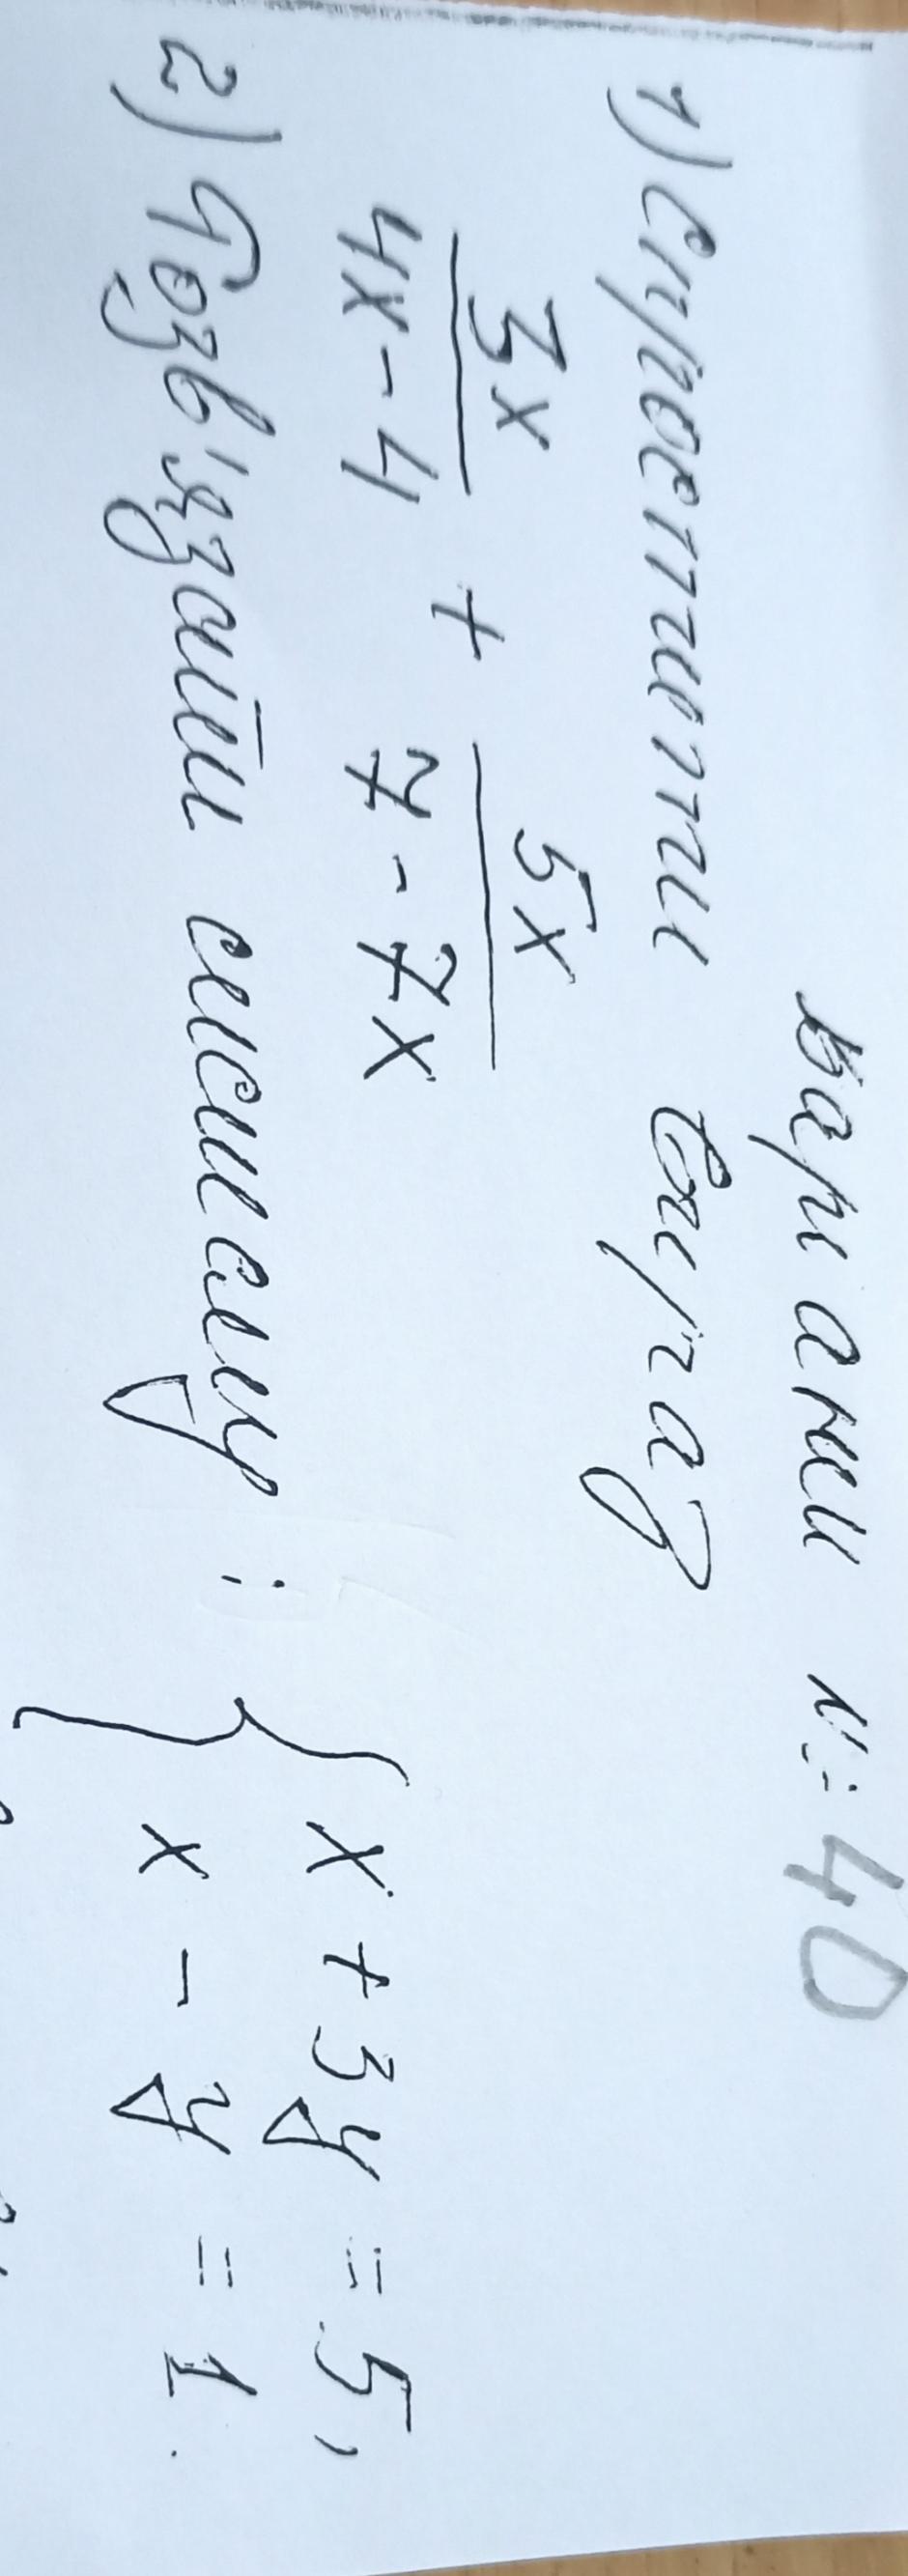 Варіант № 40
1) Спростити вираз
3x / 4x - 4 + 5x / 7 - 7x
2) Розв'язати систему : { x + 3y = 5,
x - y = 1.